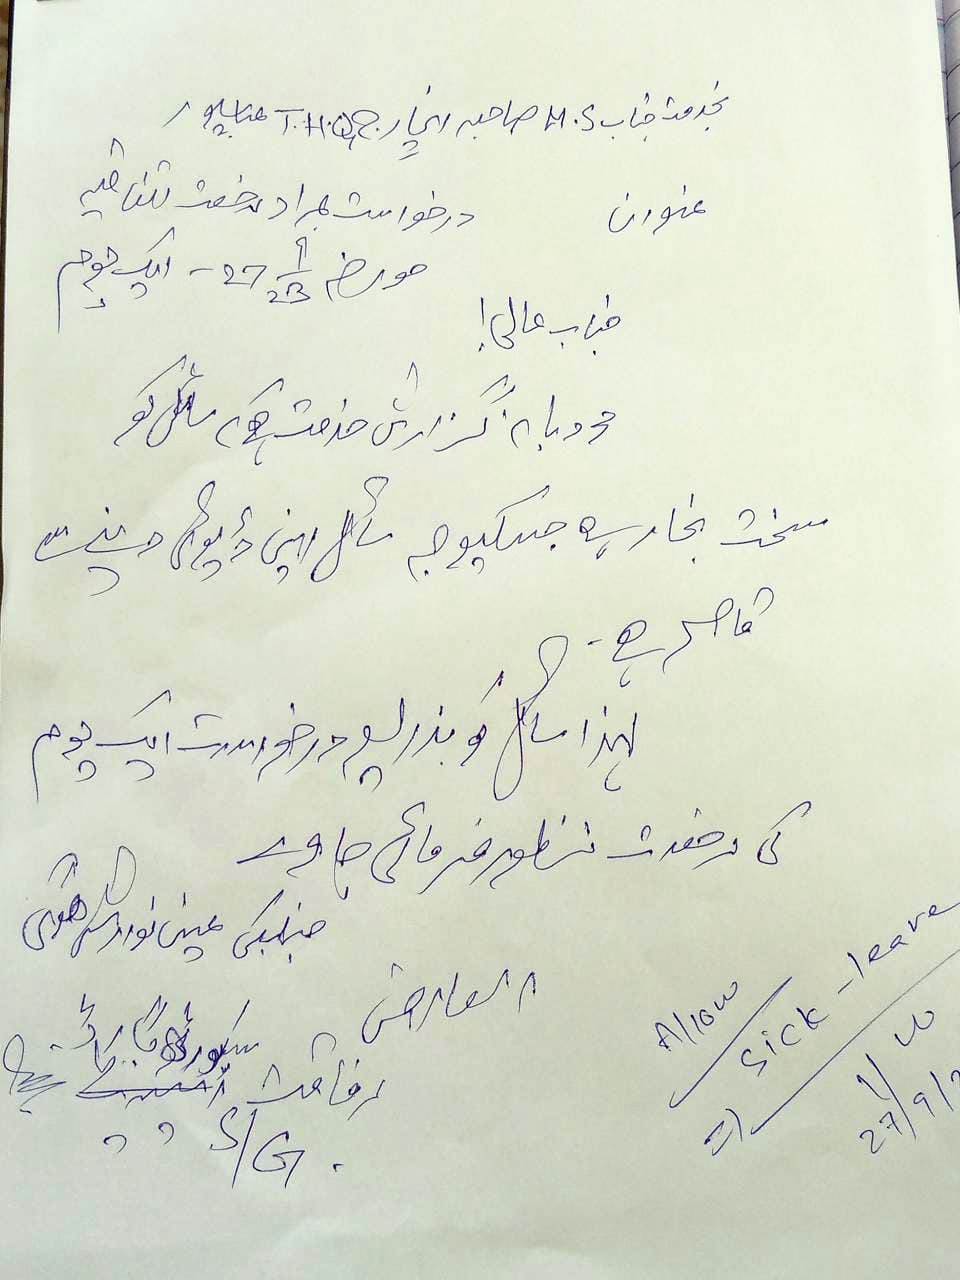 بخدمت جناب M.S صاحبہ انچارج T.H.Q
عنوان درخواست بمراد رخصت اتفاقیہ
مورخہ 27 9/23 - ایک یوم
جناب عالی!
مودبانہ گزارش خدمت ہے کہ سائل کو
سخت بخار ہے جسکیوجہ سائل اپنی ڈیوٹی دینے سے
قاصر ہے -
لہذا سائل کو بذریعہ درخواست ایک یوم
کی رخصت منظور فرمائی جاوے
جنابکی عین نوازش ہوگی
العارض
رفاقت سکیورٹی گارڈ
S/G.
Allow
Sick-leave
27/9/2